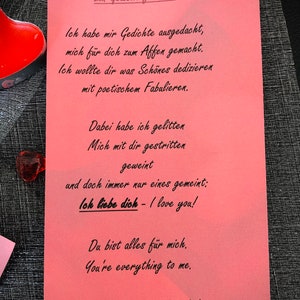 Ich habe mir Gedichte ausgedacht,
mich für dich zum Affen gemacht.
Ich wollte dir was Schönes dedizieren
mit poetischem Fabulieren.
Dabei habe ich gelitten
Mich mit dir gestritten
geweint
und doch immer nur eines gemeint:
Ich liebe dich - I love you!
Du bist alles für mich.
You're everything to me.